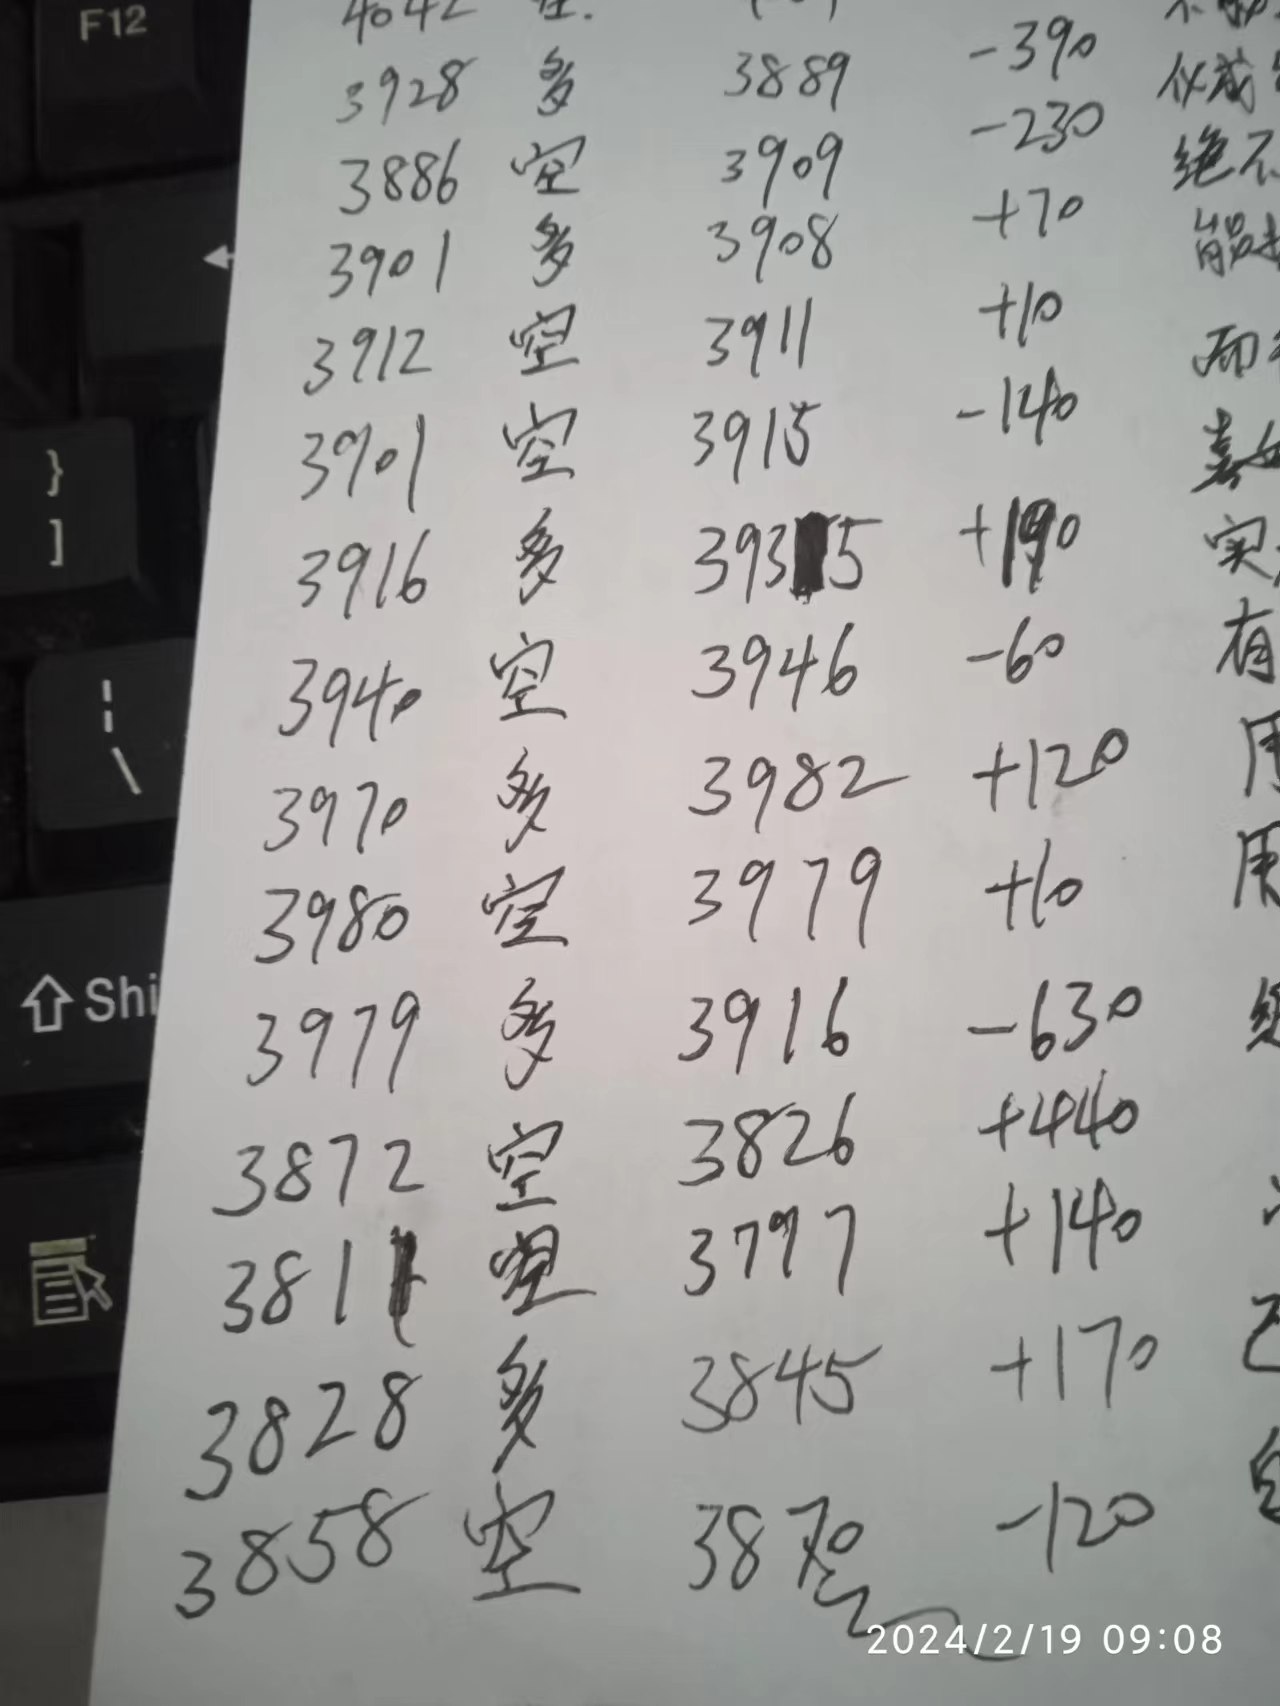 F12
4042 空.
3928 多 3889 -390
3886 空 3909 -230
3901 多 3908 +70
3912 空 3911 +10
3901 空 3915 -140
3916 多 3935 +190
3940 空 3946 -60
3970 多 3982 +120
3980 空 3979 +10
3979 多 3916 -630
3872 空 3826 +440
3811 空 3797 +140
3828 多 3845 +170
3858 空 3870 -120
绝不
能
而
实
有
用
}
]
|
\
Shi
2024/2/19 09:08